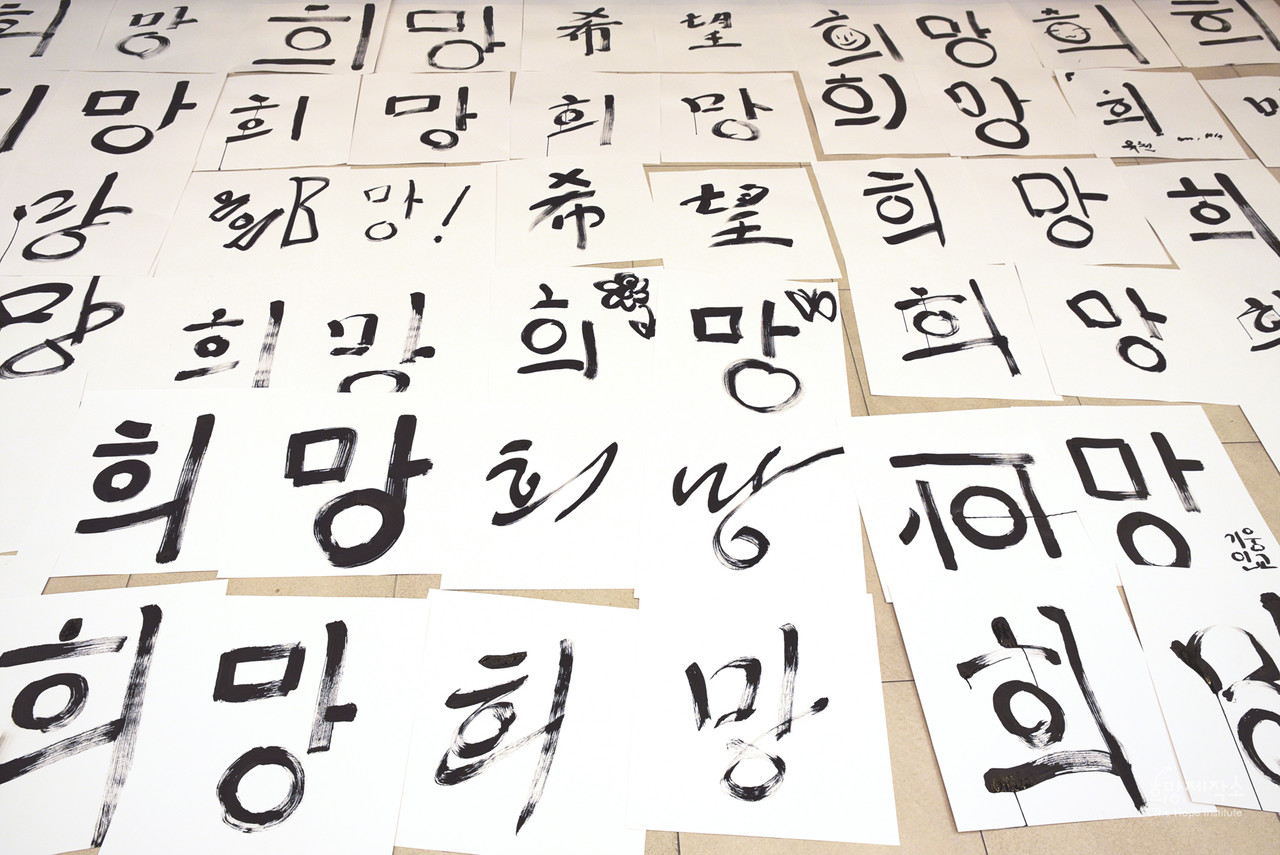 희 희 희 망 希 望 희 망 희 희
망 희 망 희 망 희 망 희
망! 希 望 희 망 희
망 희 망 희 망 희 망
희 망 희 망 희 망
기웅
희 망 희 망 희
희망제작소
Hope Institute